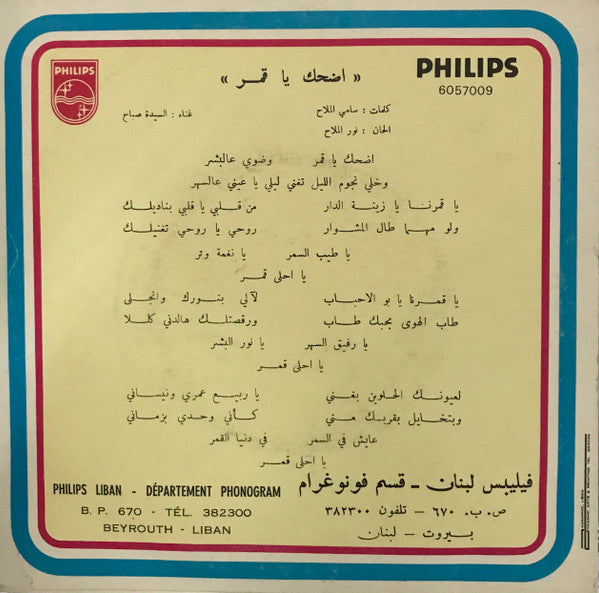 PHILIPS
« اضحك يا قمر »
PHILIPS
6057009
كلمات : سامي الملاح
غناء : السيدة صباح
الحان : نور الملاح
اضحك يا قمر وضوي عالبشر
وخلي نجوم الليل تغني ليلي يا عيني عالسهر
يا قمرنا يا زينة الدار من قلبي يا قلبي بناديلك
ولو مهما طال المشوار روحي يا روحي تغنيلك
يا طيب السمر يا نغمة وتر
يا احلى قمر
يا قمرنا يا بو الاحباب لآلي بنورك وانجلى
طاب الهوى بحبك طاب ورقصتلك هالدني كلا
يا رفيق السهر يا نور البشر
يا احلى قمر
لعيونك الحلوين بغني يا ربيع عمري ونيساني
وبتخايل بقربك مني كأني وحدي بزماني
عايش في السمر في دنيا القمر
يا احلى قمر
فيليبس لبنان - قسم فونوغرام
PHILIPS LIBAN - DÉPARTEMENT PHONOGRAM
ص. ب. ٦٧٠ – تلفون ٣٨٢٣٠٠
B. P. 670 - TÉL. 382300
بيروت – لبنان
BEYROUTH - LIBAN